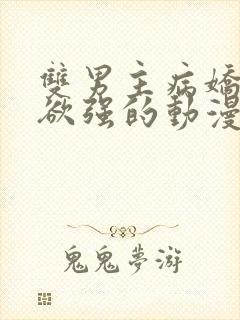 雙男主病嬌
欲强的動漫
鬼鬼夢游